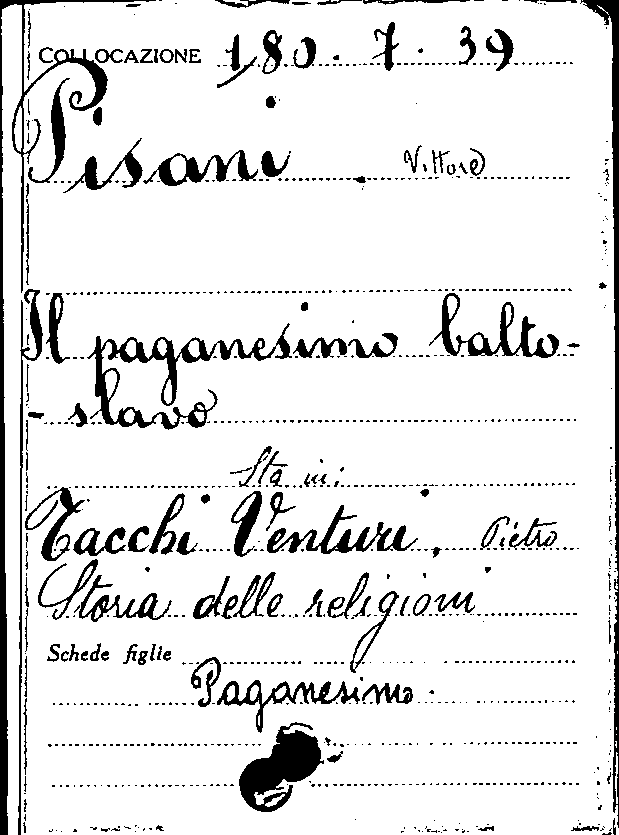 COLLOCAZIONE 180.7.39
Pisani. Vittore
Il paganesimo balto-
-slavo
Sta in:
Tacchi Venturi, Pietro
Storia delle religioni
Schede figlie
Paganesimo.